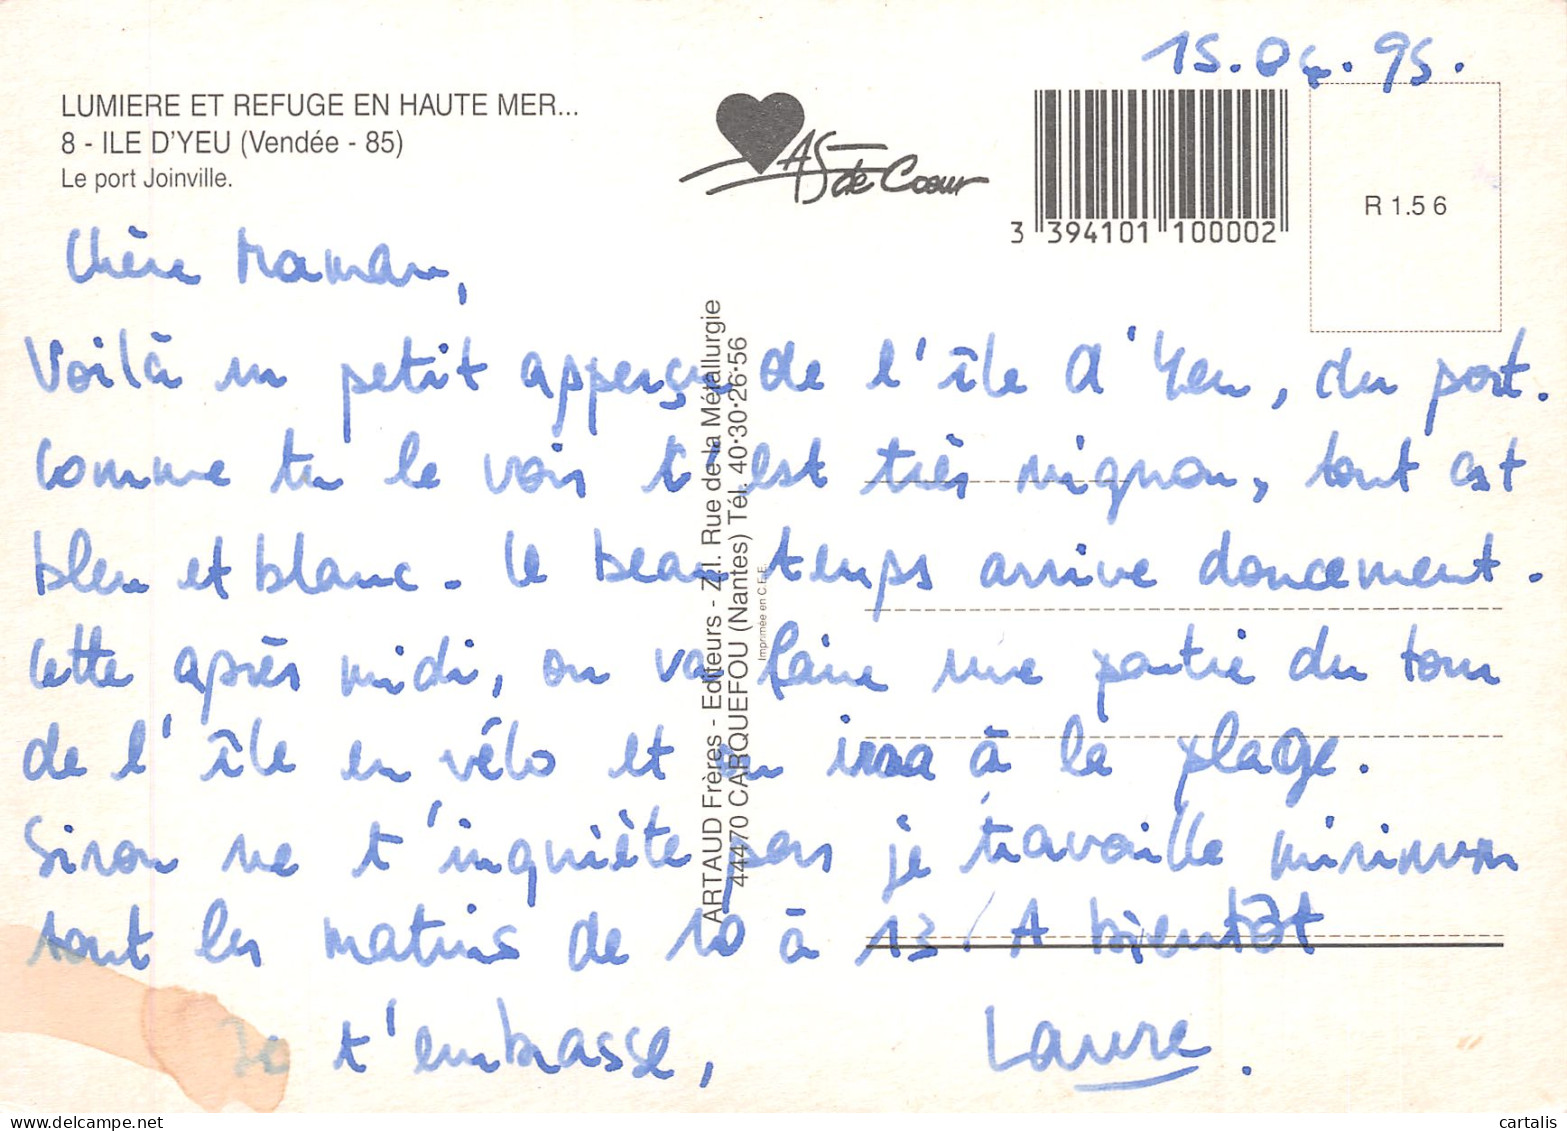 15.04.95.
LUMIERE ET REFUGE EN HAUTE MER...
8 - ILE D'YEU (Vendée - 85)
Le port Joinville.
AS de Coeur
3 394101 100002
R 1.5 6
Chère Maman,
Voilà un petit apperçu de l'île d'Yeu, du port.
Comme tu le vois c'est très mignon, tout est
bleu et blanc. Le beau temps arrive doucement.
Cette après midi, on va faire une partie du tour
de l'île en vélo et on ira à la plage.
Sinon ne t'inquiète pas je travaille minimum
tout les matins de 10 à 13. A bientôt
Je t'embrasse, Laure.
ARTAUD Frères - Editeurs - Z.I. Rue de la Métallurgie
44470 CARQUEFOU (Nantes) Tél. 40·30·26·56
Imprimée en C.E.E.
cartalis